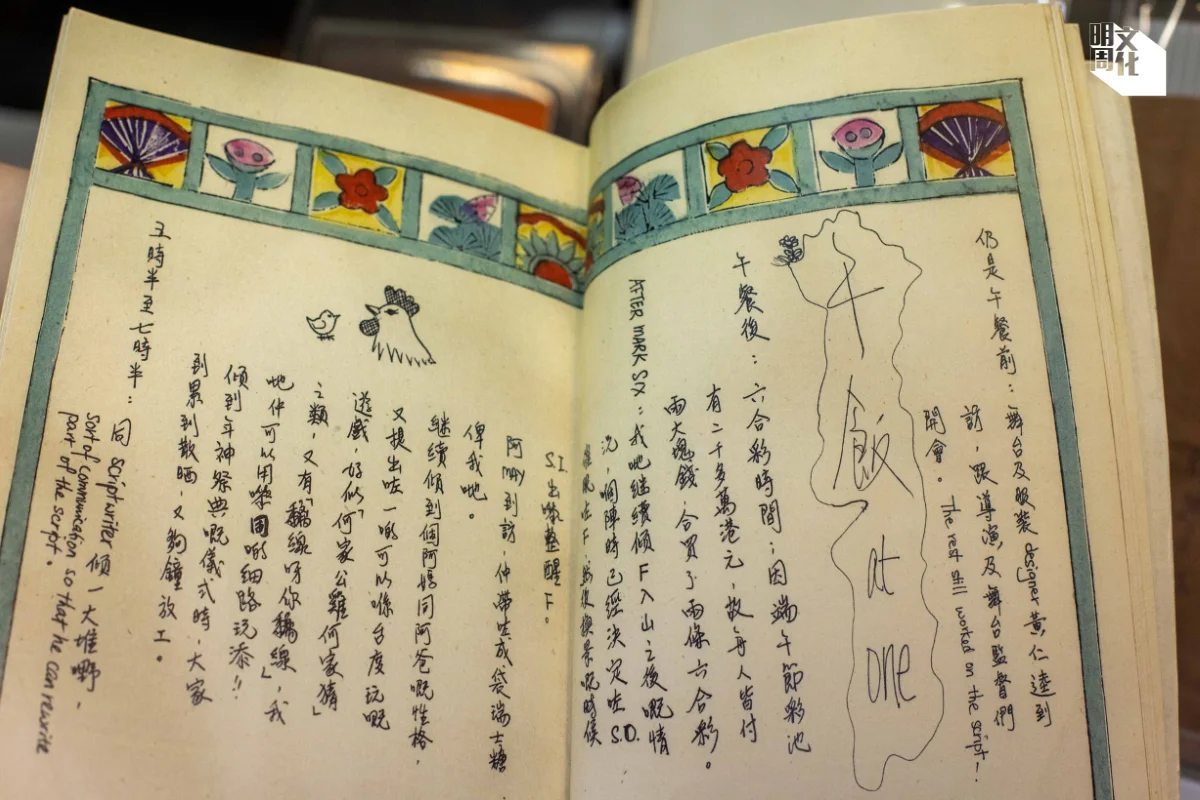 仍是午餐前：舞台及服裝 designer 黃仁逵到
訪，跟導演及舞台監督們
開會。 The rest still worked on the script!
午飯 at one
午餐後：六合彩時間，因端午節彩池
有二千多萬港元，故每人皆付
兩大塊錢合買了兩條六合彩。
AFTER MARK SIX：我哋繼續傾F入山之後嘅情
況，嗰陣時已經決定咗S.D.
咗F，然後換景嘅時候
S.I. 出嚟整醒F。
阿MAY到訪，仲帶咗成袋瑞士糖
俾我哋。
繼續傾到個阿媽同阿爸嘅性格，
又提出咗一啲可以喺台度玩嘅
遊戲，好似「何家公雞何家猜」
之類，又有「黐線呀你黐線」，我
哋仲可以用嚟 啲細路玩添!!
傾到年神祭典嘅儀式時，大家
到累到散晒，又夠鐘放工。
五時半至七時半：同 scriptwriter 傾一大堆野，
sort of communication so that he can rewrite
part of the script.
明周文化